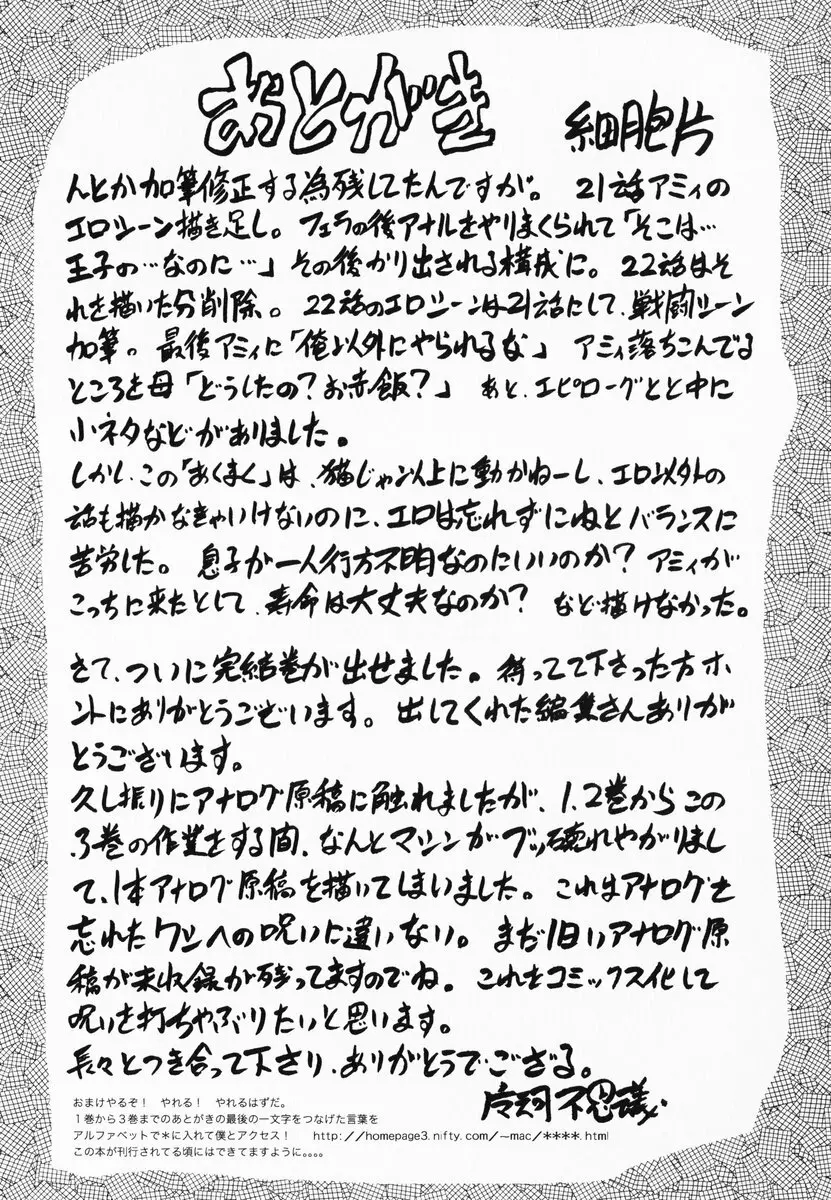 あとがき 細胞片
んとか加筆修正する為残してたんですが。 21話アミィの
エロシーン描き足し。フェラの後アナルをやりまくられて「そこは…
王子の…なのに…」その後かり出される構成に。22話はそ
れを描いた分削除。22話のエロシーンは21話にして、戦闘シーン
加筆。最後アミィに「俺以外にやられるな」 アミィ落ちこんでる
ところを母「どうしたの？お赤飯？」 あと、エピローグとと中に
小ネタなどがありました。
しかし、この「あくまく」は、猫じゃン以上に動かねーし、エロ以外の
話も描かなきゃいけないのに、エロは忘れずにねとバランスに
苦労した。息子が一人行方不明なのにいいのか？アミィが
こっちに来たとして、寿命は大丈夫なのか？ など描けなかった。
さて、ついに完結巻が出せました。待ってて下さった方ホ
ントにありがとうございます。出してくれた編集さんありが
とうございます。
久し振りにアナログ原稿に触れましたが、1.2巻からこの
3巻の作業をする間、なんとマシンがブッ壊れやがりまし
て、1本アナログ原稿を描いてしまいました。これはアナログを
忘れたワシへの呪いに違いない。まだ旧いアナログ原
稿が未収録が残ってますのでね。これをコミックス化して
呪いを打ちやぶりたいと思います。
長々とつき合って下さり、ありがとうでござる。
不思議
おまけやるぞ！　やれる！　やれるはずだ。
１巻から３巻までのあとがきの最後の一文字をつなげた言葉を
アルファベットで＊に入れて僕とアクセス！　http://homepage3.nifty.com/~mac/****.html
この本が刊行されてる頃にはできてますように。。。。